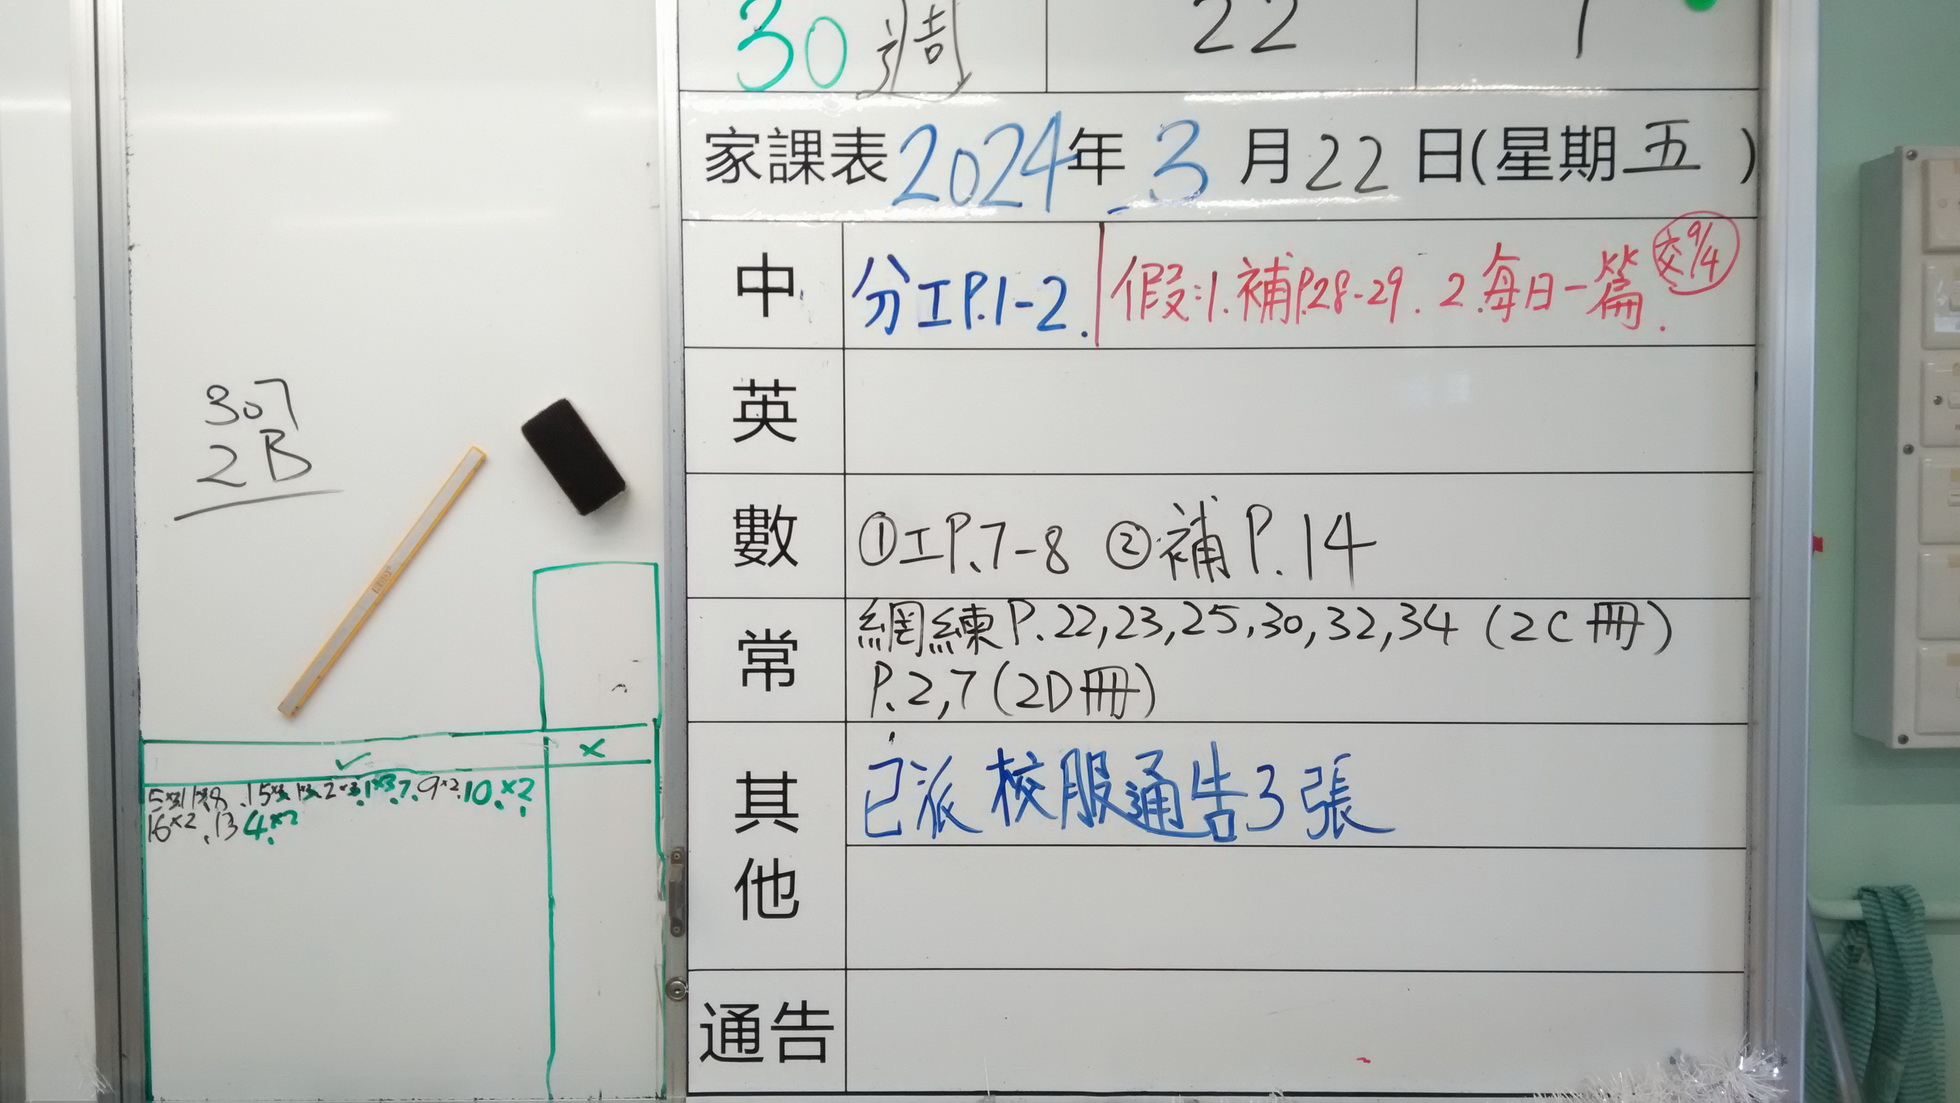 30週 22 1
家課表 2024年 3 月 22 日(星期 五 )
中 分工P.1-2. 假:1.補P.28-29. 2.每日一篇. 交9/4
英
數 ①工P.7-8 ②補P.14
常 網練P.22,23,25,30,32,34 (2C冊)
P.2,7(2D冊)
其他 已派校服通告3張
通告
307
2B
✓ ×
16×2 .13 4×2